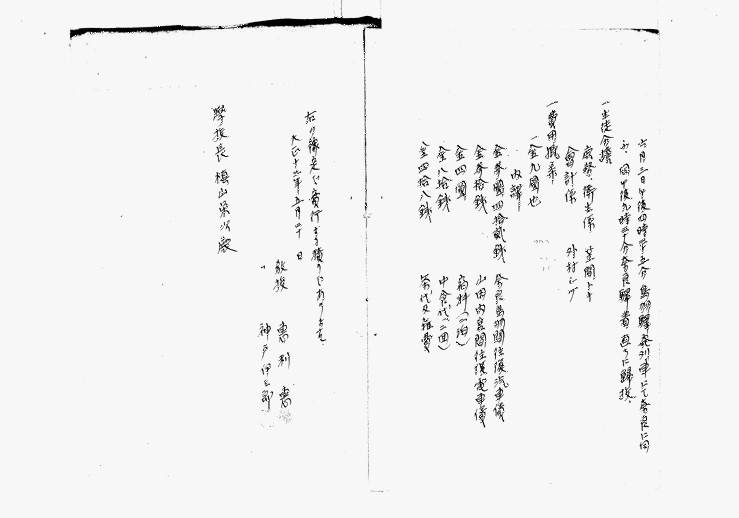 六月三日午後四時三十五分鳥羽驛発列車にて奈良に向
ふ、同午後九時三十分奈良驛着直ちに歸校、
一生徒分擔
庶務、衛生係 笠間トキ
會計係 外村シヅ
一費用概算
一金九圓也
内譯
金参圓四拾貳銭 奈良鳥羽間往復汽車賃
金参拾銭 山田内宮間往復電車賃
金四圓 宿料(二泊)
金八拾銭 中食代(二回)
金四拾八銭 茶代及雑費
右の豫定にて實行する積りにあり
大正十三年五月 日
教授 惠利惠
〃 神戸伊三郎
學校長 槇山榮次殿